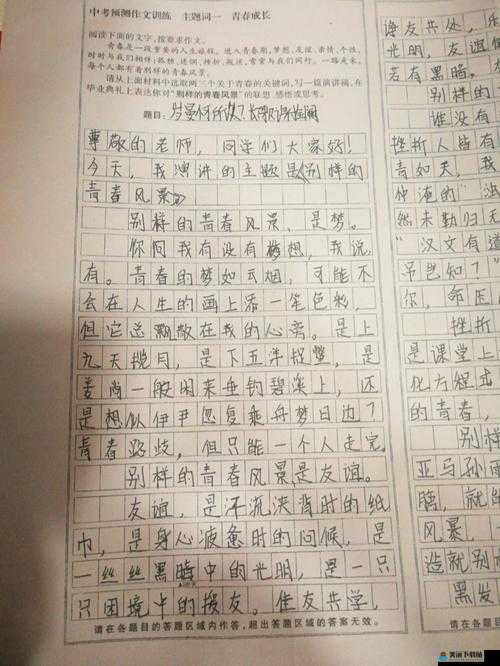 中考预测作文训练 主题词一 青春成长
阅读下面的文字,按要求作文。
青春是一段重要的人生旅程。进入青春期,梦想、友谊、亲情、个性,
时时与我们相伴;孤独、迷惘、烦恼、挫折……时时与我们同行。一路走来,
每个人都有着别样的青春风景。
请从上面材料中选取两三个关于青春的关键词,写一篇演讲稿,在
毕业典礼上表达你对“别样的青春风景”的联想、感悟或思考。
题目:
尊敬的老师,同学们大家好!
今天,我演讲的主题是《别样的
青春风景》
别样的青春风景,是梦。
你问我有没有梦想,我说,
有。青春的梦如云烟,可能不
会在人生的画上添一笔色彩,
但它总飘散在我的心旁。是上
九天揽月,是下五洋捉鳖,是
姜尚一般闲来垂钓碧溪上,还
是想似伊尹忽复乘舟梦日边?
青春路歧,但只能一个人走完。
别样的青春风景是友谊。
友谊,是汗流浃背时的纸
巾,是身心疲惫时的问候,是
一丝丝黑暗中的光明,是一只
只困境中的援友。佳友共学,
请在各题目的答题区域内作答,超出答题区域的答案无效。
诤友共处,乐
光明,友谊
若有黑暗。
别样的
谁没有
挫折人皆有
青如天,我
仲淹的“
然未勒归无
”汉文有道
吊岂知?”
你,命困
挫折
是课堂上
化方程式
的青春,
别样
亚马孙
腾,就
风暴,
造就别
黑发
请在各
笑涵下载站